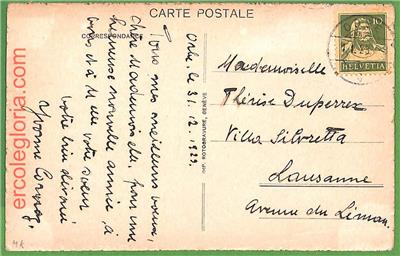 CARTE POSTALE
CORRESPONDANCE
Orbe, le 31.12.1929.
Tous mes meilleurs vœux,
chère Mademoiselle, pour une
heureuse nouvelle année, à
vous et à M votre sœur
votre bien dévouée
Yvonne
Mademoiselle
Thérèse Duperrex
Villa Silvretta
Lausanne
Avenue du Léman.
10
HELVETIA
ercolegloria.com